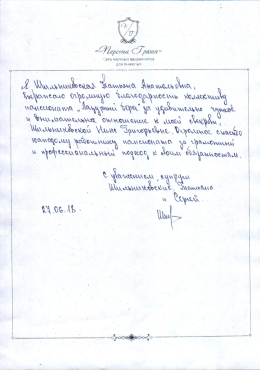 «Первая Грань»
Сеть частных пансионатов
для пожилых
Я Шильниковская Татьяна Анатольевна,
выражаю огромную благодарность коллективу
пансионата „Лазурный берег" за удивительно чуткое
и внимательное отношение к моей свекрови,
Шильниковской Нине Григорьевне. Огромное спасибо
каждому работнику пансионата за грамотный
и профессиональный подход к своим обязанностям.
С уважением, супруги
Шильниковские Татьяна
и Сергей.
27.06.18.